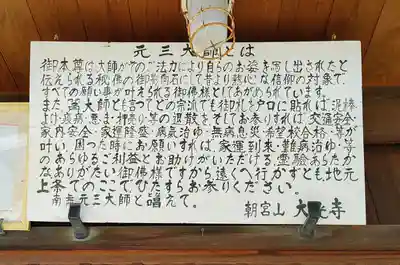 元三大師とは
御本尊は大師がそのご法力により自らのお姿を写し出されたと
伝えられる秘佛の御影向石にして昔より熱心な信仰の対象で
すべての願い事が叶えられる御佛様としてあがめられています。
また 大師とも言ってどの宗派でも御札を戸口に貼れば、泥棒
よけ・疫病・悪ま・押売り・等の退散をそしてお参りすれば、交通安全・
家内安全・家運隆盛・病気治ゆ・無病息災・希望校合格・等が
叶い、困った時にお願いすれば、家運到来・難病治ゆ・等
のあらゆるご利益とお助けがいただける、霊験あらたか
なありがたい御佛様ですから、遠くへ行かずとも地元
上茶てのここで、ひたすらお参りください。
南無元三大師と唱えて。
朝宮山 大 寺